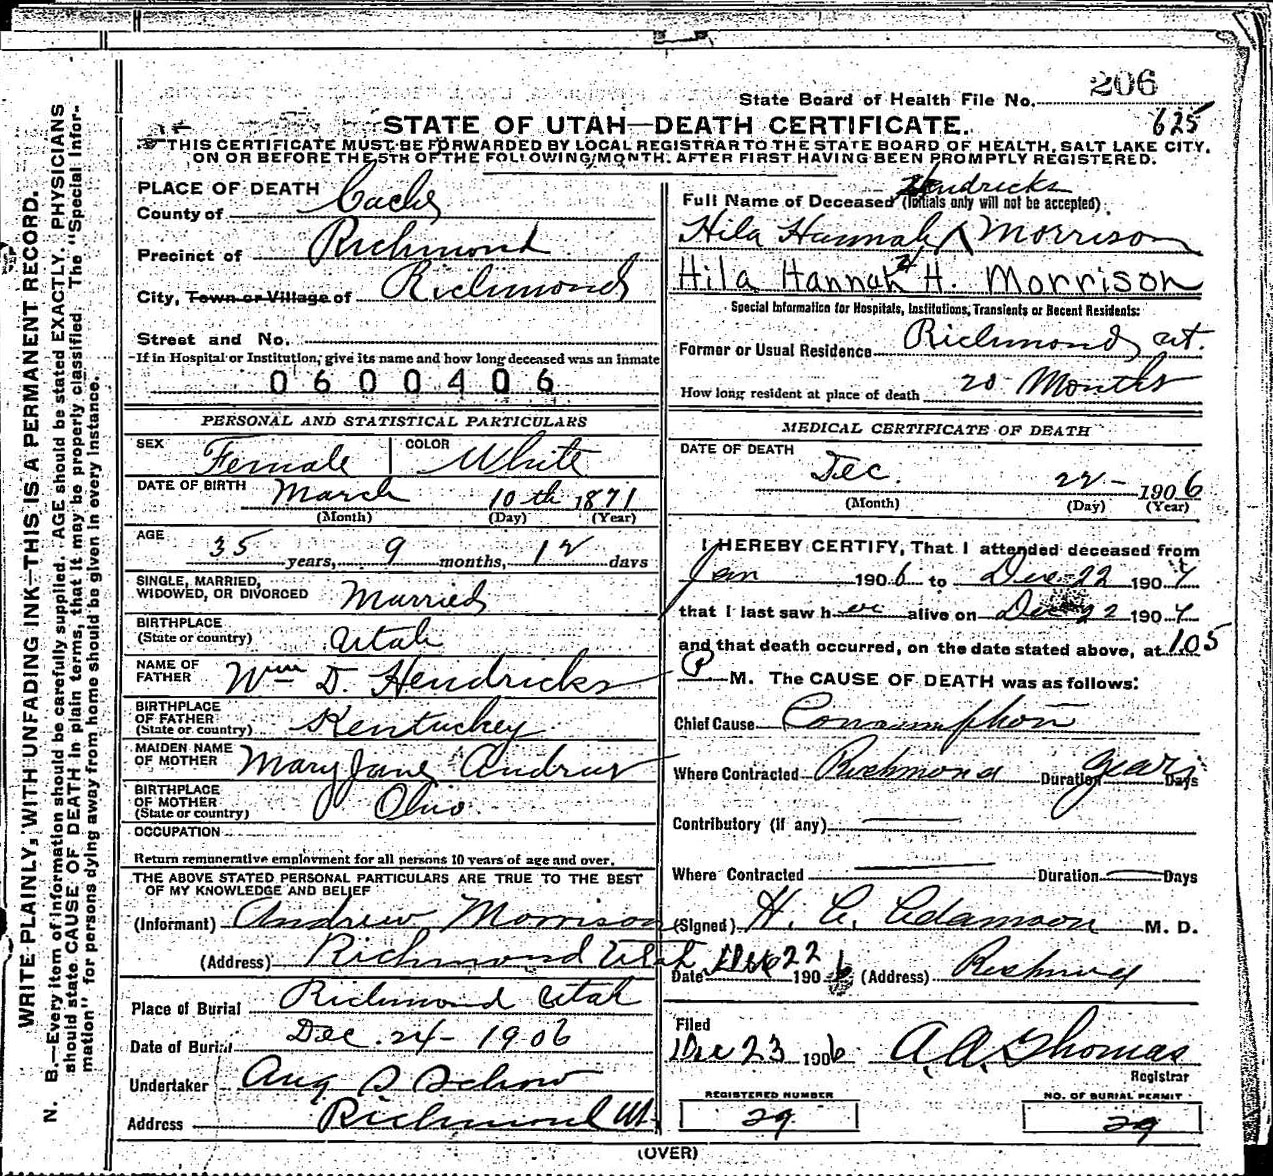 206
State Board of Health File No.
625
STATE OF UTAH—DEATH CERTIFICATE.
THIS CERTIFICATE MUST BE FORWARDED BY LOCAL REGISTRAR TO THE STATE BOARD OF HEALTH, SALT LAKE CITY,
ON OR BEFORE THE 5TH OF THE FOLLOWING MONTH. AFTER FIRST HAVING BEEN PROMPTLY REGISTERED.
WRITE PLAINLY, WITH UNFADING INK—THIS IS A PERMANENT RECORD.
N. B.—Every item of information should be carefully supplied. AGE should be stated EXACTLY. PHYSICIANS
should state CAUSE OF DEATH in plain terms, that it may be properly classified. The "Special Infor-
mation" for persons dying away from home should be given in every instance.
PLACE OF DEATH
County of Cache
Precinct of Richmond
City, Town or Village of Richmond
Street and No.
If in Hospital or Institution, give its name and how long deceased was an inmate
0600406
PERSONAL AND STATISTICAL PARTICULARS
SEX Female COLOR White
DATE OF BIRTH March 10th 1871
(Month) (Day) (Year)
AGE
35 years, 9 months, 12 days
SINGLE, MARRIED,
WIDOWED, OR DIVORCED Married
BIRTHPLACE
(State or country) Utah
NAME OF
FATHER Wm D. Hendricks
BIRTHPLACE
OF FATHER
(State or country) Kentuckey
MAIDEN NAME
OF MOTHER Mary Jane Andrus
BIRTHPLACE
OF MOTHER
(State or country) Ohio
OCCUPATION
Return remunerative employment for all persons 10 years of age and over.
THE ABOVE STATED PERSONAL PARTICULARS ARE TRUE TO THE BEST
OF MY KNOWLEDGE AND BELIEF
(Informant) Andrew Morrison
(Address) Richmond Utah
Place of Burial Richmond Utah
Date of Burial Dec. 24 - 1906
Undertaker Aug S Schow
Address Richmond Ut.
Hendricks
Full Name of Deceased (Initials only will not be accepted)
Hila Hannah Morrison
Hila Hannah H. Morrison
Special Information for Hospitals, Institutions, Transients or Recent Residents:
Former or Usual Residence Richmond, ut.
How long resident at place of death 20 Months
MEDICAL CERTIFICATE OF DEATH
DATE OF DEATH
Dec. 22 - 1906
(Month) (Day) (Year)
I HEREBY CERTIFY, That I attended deceased from
Jan 1906 to Dec 22 190
that I last saw her alive on Dec 22 190
and that death occurred, on the date stated above, at 105
P M. The CAUSE OF DEATH was as follows:
Chief Cause Consumption
Where Contracted Richmond Duration years Days
Contributory (if any)
Where Contracted Duration Days
(Signed) H. C. Adamson M. D.
Date Dec 22 1906 (Address) Richmond
Filed
Dec 23 1906 A. A. Thomas
Registrar
REGISTERED NUMBER
29
NO. OF BURIAL PERMIT
29
(OVER)